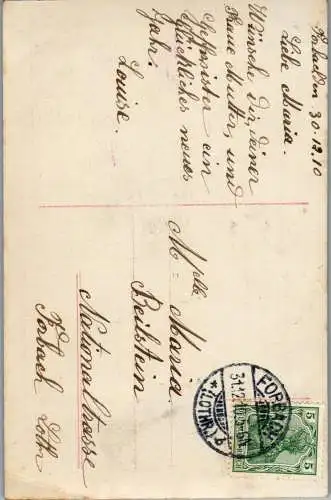 Forbach 30.12.10
Liebe Maria.
Wünsche Dir, deiner
Mutter, und
Geschwister ein
glückliches neues
Jahr.
Louise.
Mlle Maria
Beilstein
Nationalstrasse
Forbach Lothr.
FORBACH
31.12
*(LOTHR.)
5
5